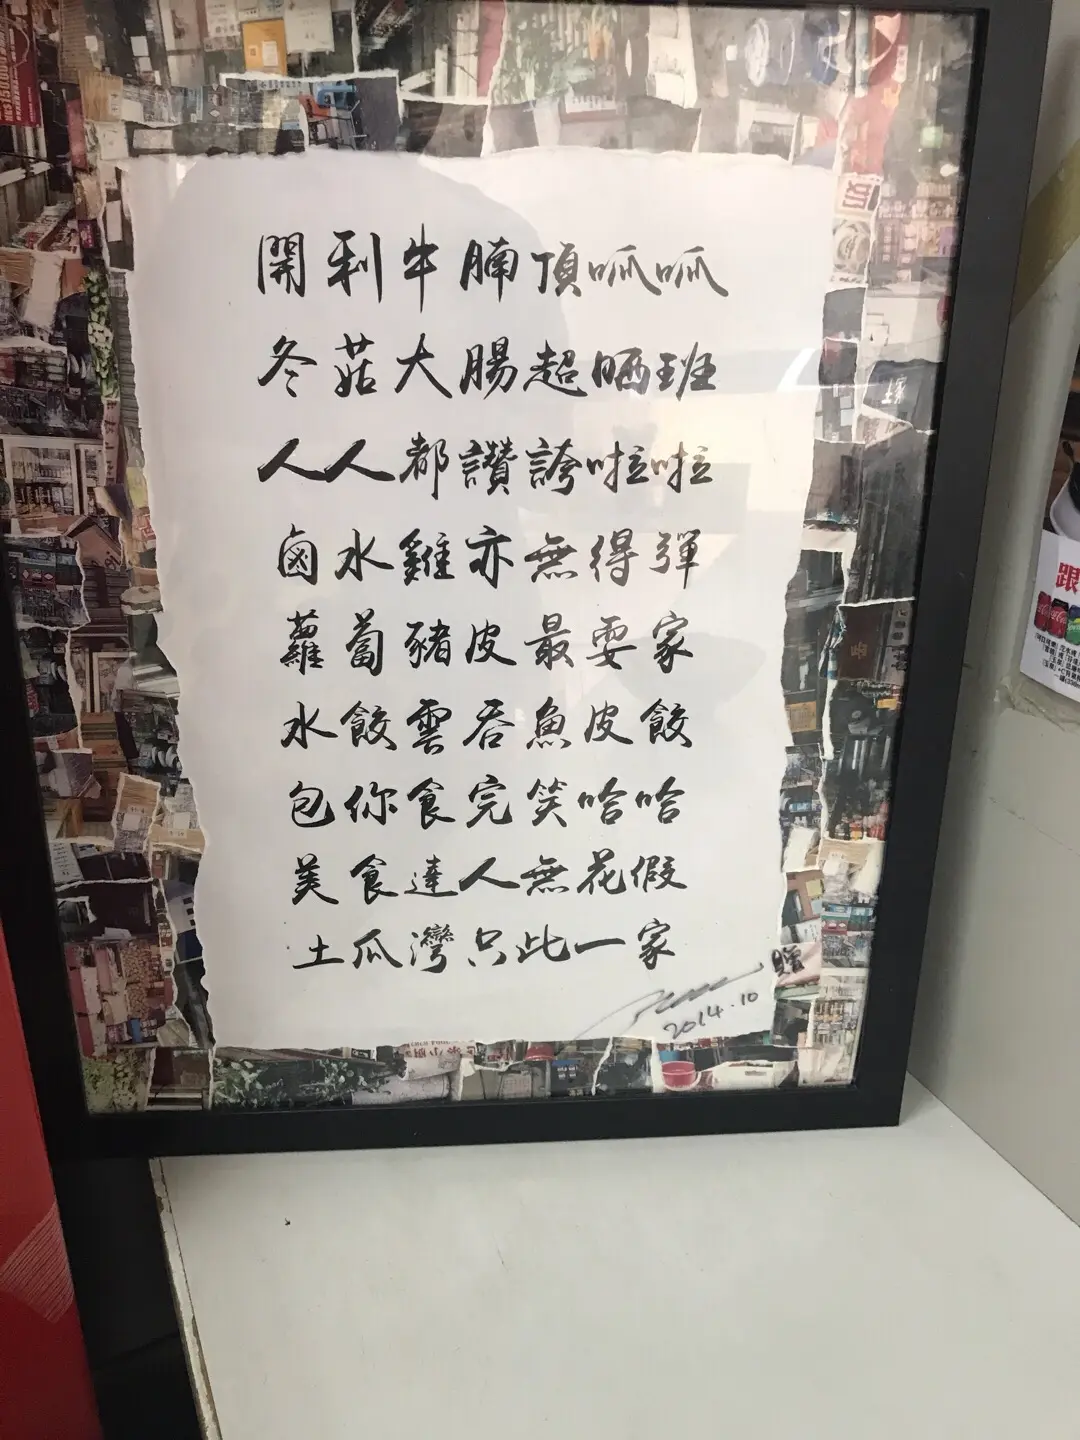 開利牛腩頂呱呱
冬菇大腸超晒班
人人都讚誇啦啦
鹵水雞亦無得彈
蘿蔔豬皮最耍家
水餃雲吞魚皮餃
包你食完笑哈哈
美食達人無花假
土瓜灣只此一家
贈
2014.10
跟